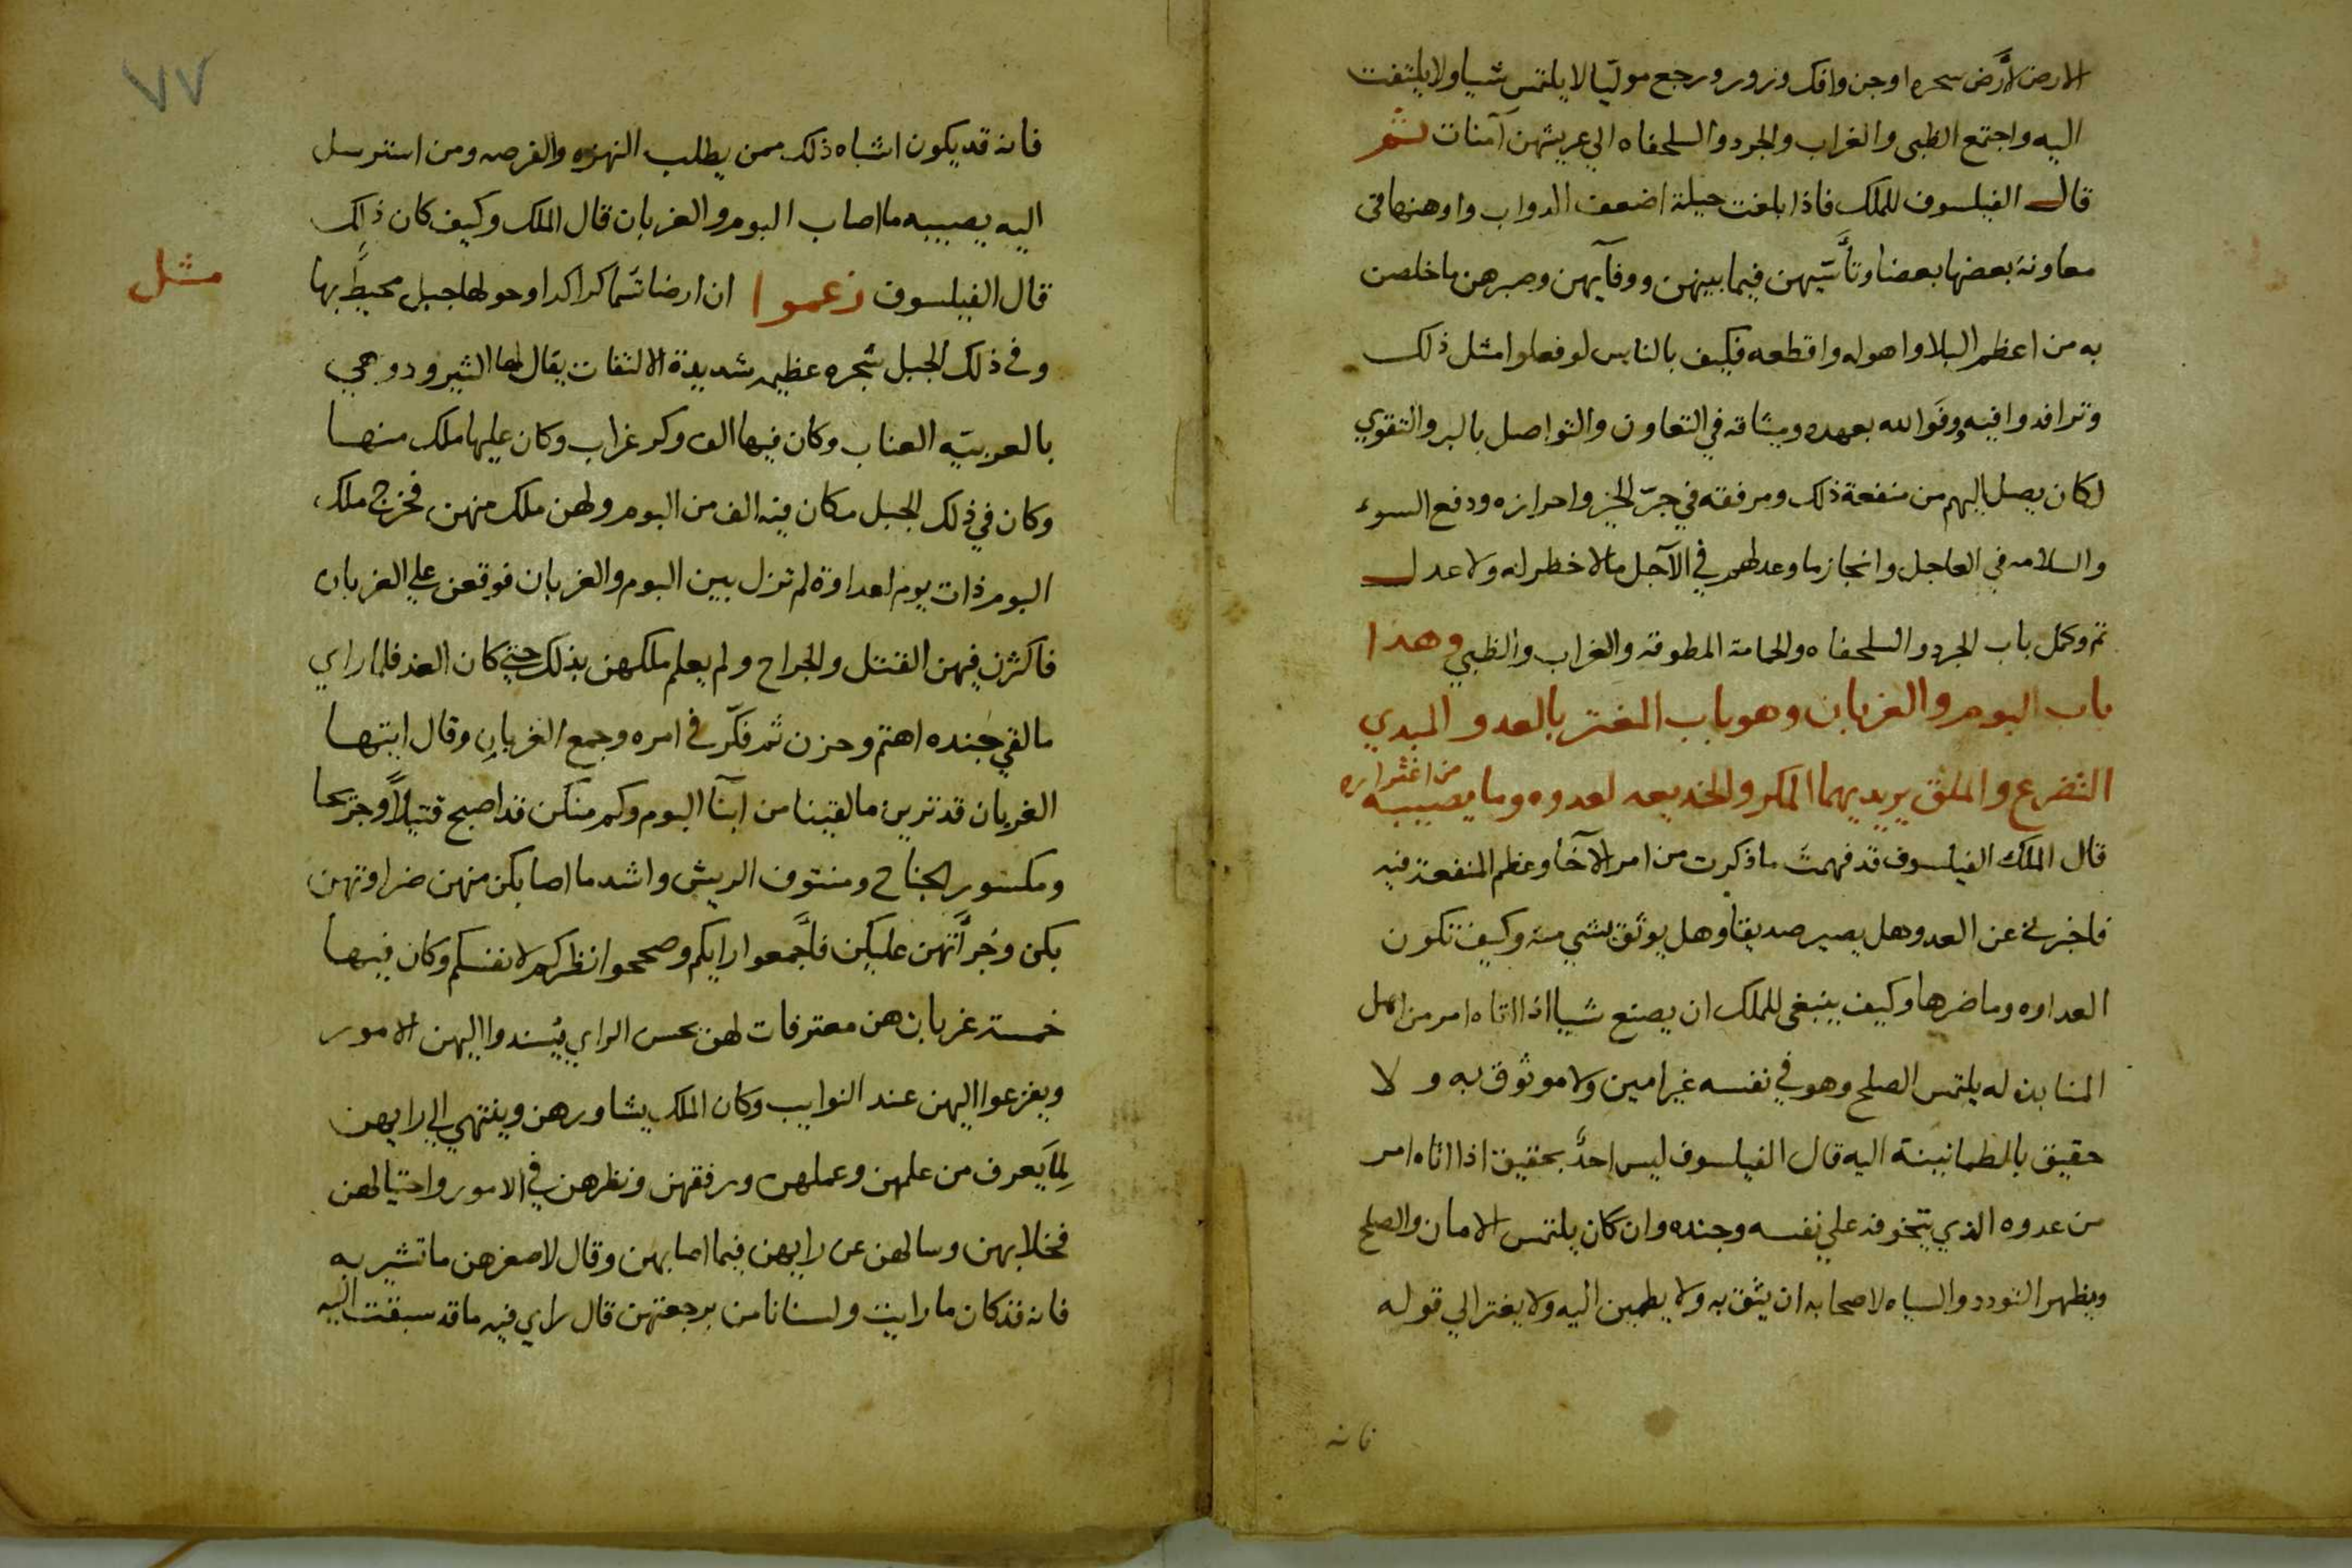 الارض لأرض سحره اوجن وافك وزور ورجع موليا لا يلتمس شيا ولا يلتفت
اليه واجتمع الظبى والغراب والجرد والسلحفاه الي عريشهن آمنات ثم
قال الفيلسوف للملك فاذا بلغت حيلة اضعف الدواب واوهنها في
معاونة بعضها بعضا وتأسيهن فيما بينهن ووفآيهن وصبرهن ما خلصن
به من اعظم البلا واهوله واقطعه فكيف بالناس لو فعلوا مثل ذلك
وترافدوا فيه ووفوا لله بعهده وميثاقه في التعاون والتواصل بالبر والتقوي
لكان يصل اليهم من منفعة ذلك ومرفقته في جرّ الخير واحرازه ودفع السوء
والسلامه في العاجل وانجاز ما وعد لهم في الآجل ما لا خطر له ولا عدل
تم وكمل باب الجرد والسلحفاه والحمامة المطوقه والغراب والظبي وهدا
باب البوم والغربان وهو باب المغتر بالعدو المبدي
التضرع والملق يريد بهما المكر والخديعه لعدوه وما يصيبه من اغتراره
قال الملك الفيلسوف قد فهمت ما ذكرت من امر الآخا وعظم المنفعة فيه
فاخبرني عن العدو هل يصير صديقا وهل يوثق بشي منه وكيف تكون
العداوه وما ضرها وكيف ينبغى للملك ان يصنع شيا اذا اتاه امر من اهل
المنابذه له يلتمس الصلح وهو في نفسه غير امين ولا موثوق به ولا
حقيق بالطمانينة اليه قال الفيلسوف ليس احدٌ بحقيق اذا اتاه امر
من عدوه الذي يتخوفه علي نفسه وجنده وان كان يلتمس الامان والصلح
ويظهر التودد والسياه لاصحابه ان يثق به ولا يطمين اليه ولا يغتر الي قوله
فانه
٧٧
فانه قد يكون اشباه ذلك ممن يطلب النهزه والفرصه ومن استرسل
اليه يصيبه ما اصاب البوم والغربان قال الملك وكيف كان ذلك
مثل
قال الفيلسوف زعموا ان ارضا تسما كراكدا وحولها جبل محيط بها
وفي ذلك الجبل شجره عظيمه شديدة الالتفات يقال لها الثيرودو هي
بالعربيّه العناب وكان فيها الف وكر غراب وكان عليها ملك منها
وكان في ذلك الجبل مكان فيه الف من البوم ولهن ملك منهن فخرج ملك
البوم ذات يوم لعداوة لم تزل بين البوم والغربان فوقعن علي الغربان
فاكثرن فيهن القتل والجراح ولم يعلم ملكهن بذلك حتي كان الغد فلما راي
ما لقي جنده اهتم وحزن ثم فكّر في امره وجمع الغربان وقال ايتها
الغربان قد ترين ما لقينا من ابنآ البوم وكم منكن قد اصبح قتيلاً وجريحا
ومكسور الجناح ومنتوف الريش واشد ما اصابكن منهن ضراوتهن
بكن وجرأتهن عليكن فأجمعوا رايكم وصححوا نظركم لانفسكم وكان فيها
خمسة غربان هن معترفات لهن بحسن الراي يُسندوا اليهن الامور
ويفزعوا اليهن عند النوايب وكان الملك يشاورهن وينتهي الي رايهن
لِما يَعرف من علمهن وعملهن ورفقهن ونظرهن في الامور واحتيالهن
فخلا بهن وسالهن عن رايهن فيما اصابهن وقال لاصغرهن ما تشير به
فانه قد كان ما رايت ولسنا نامن برجعتهن قال راي فيه ما قد سبقت اليه